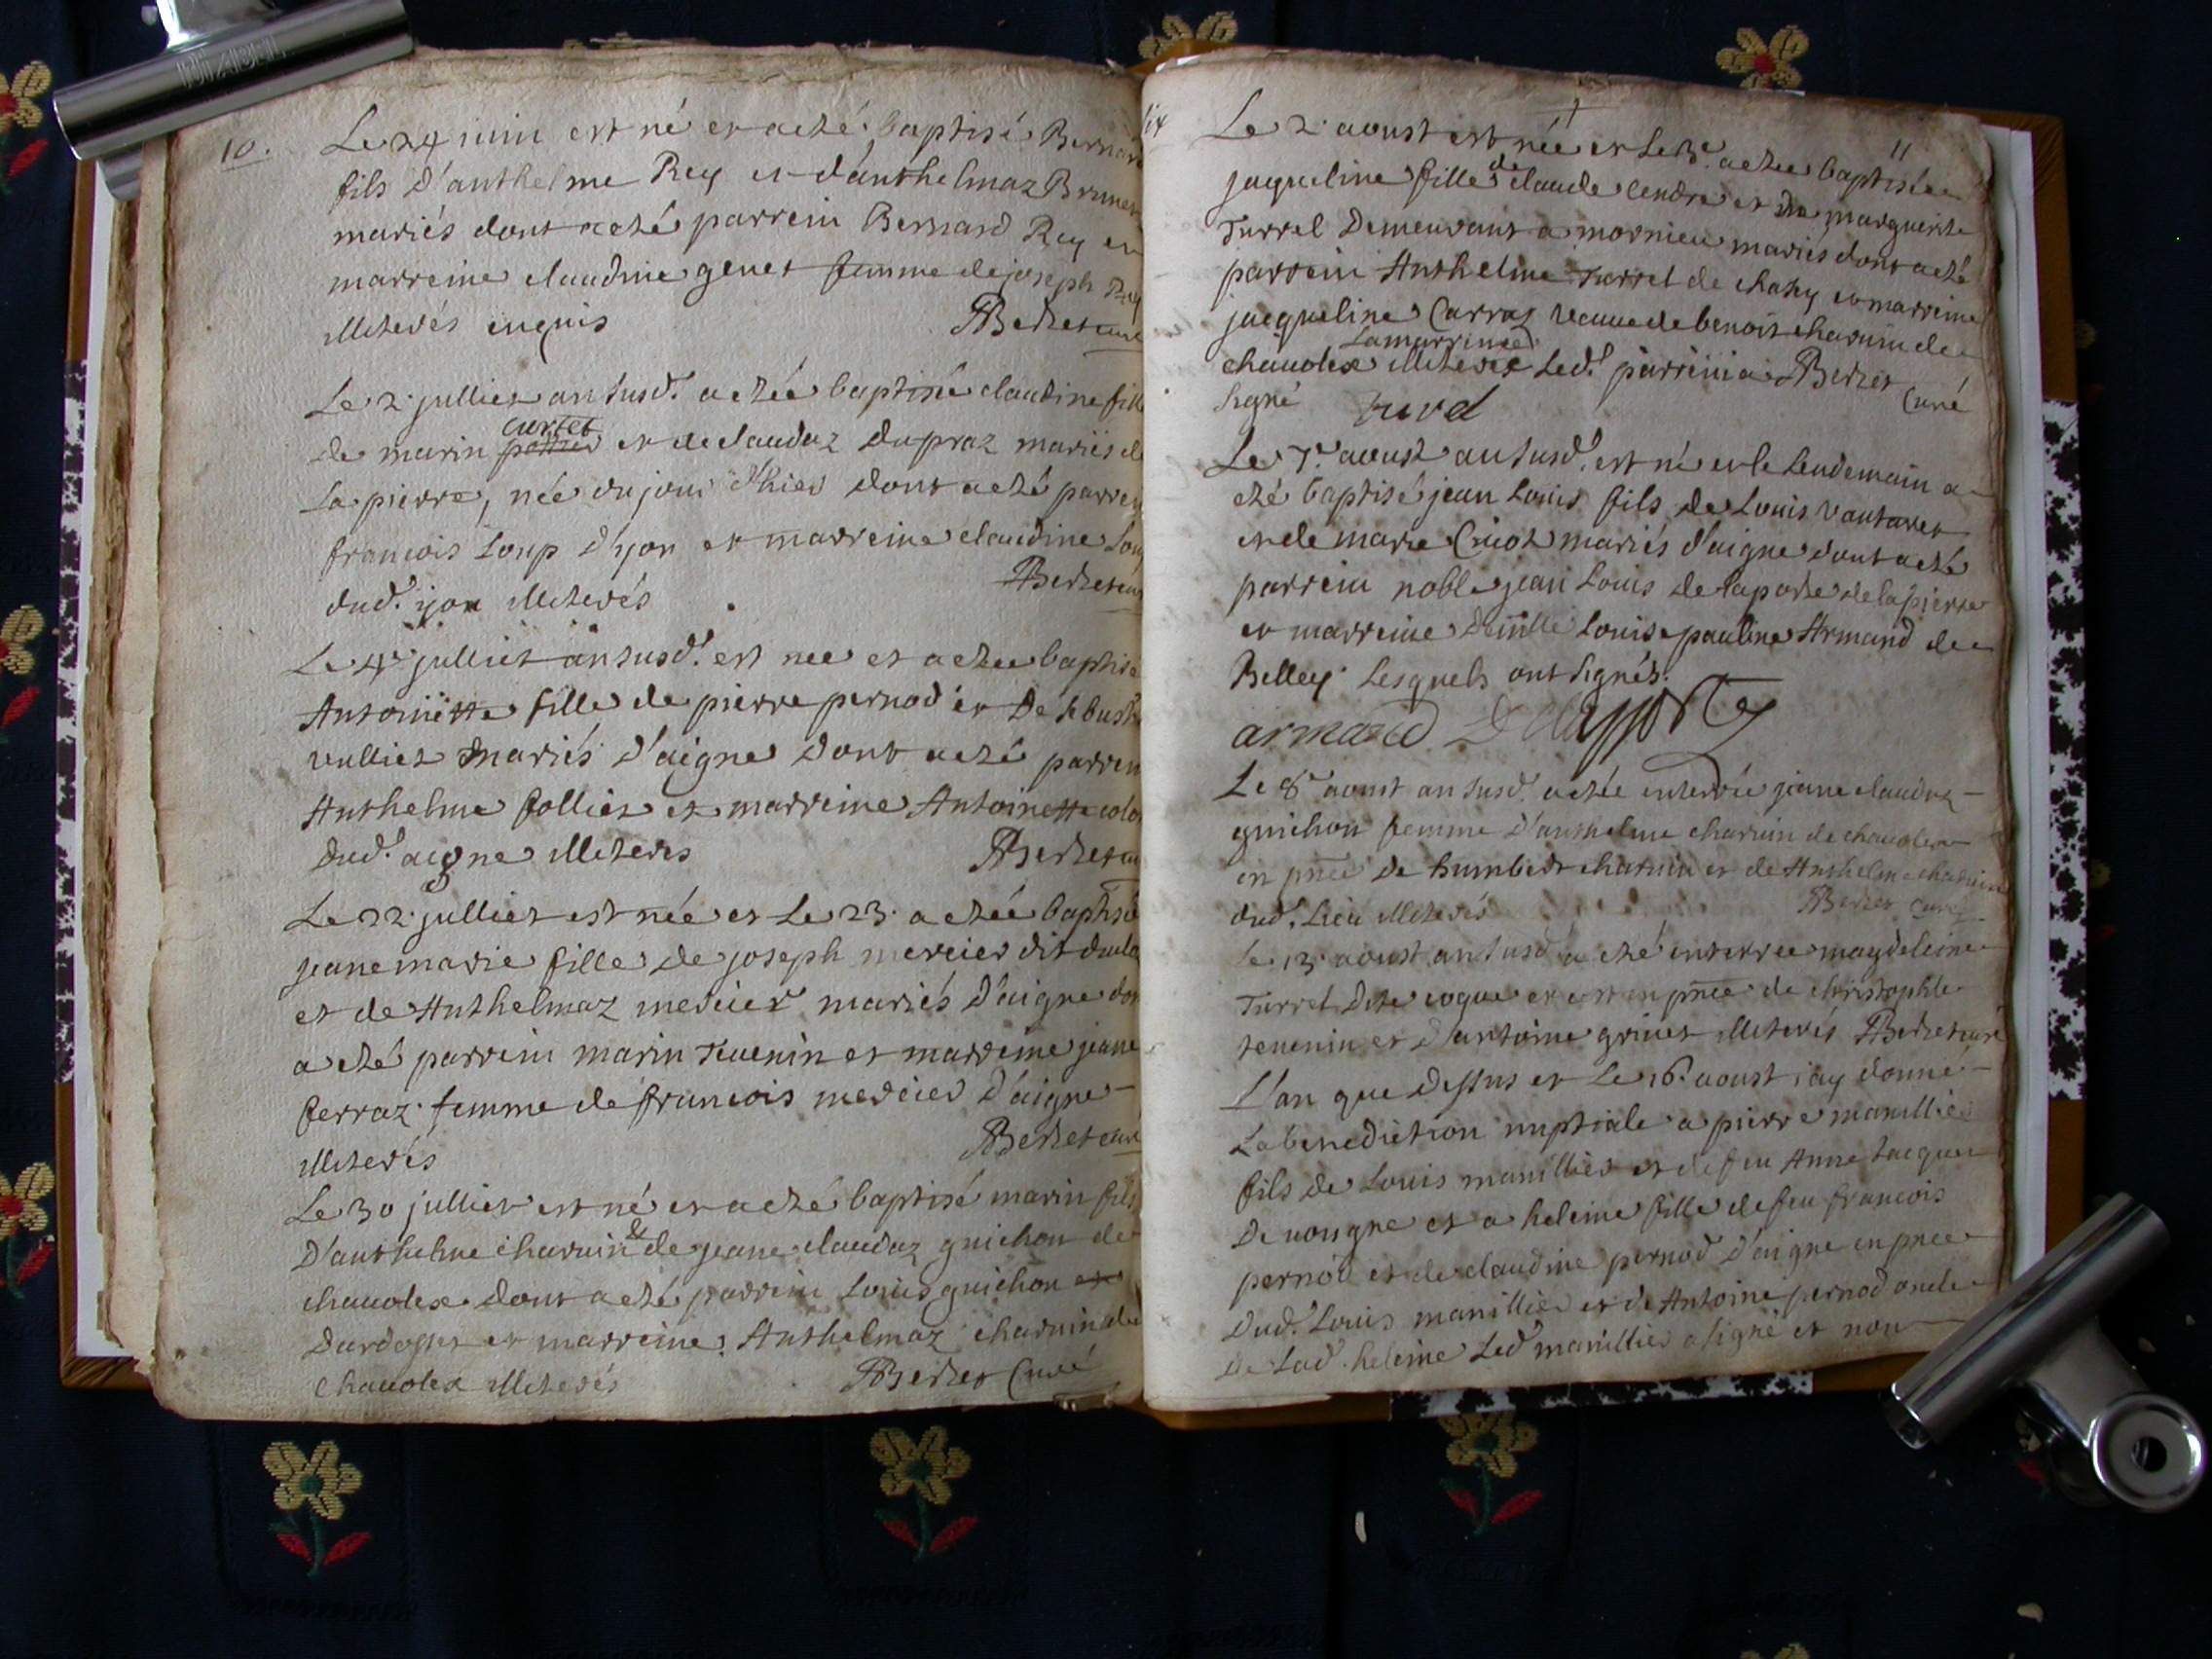 10.
Le 24 iuin est né et a eté baptisé Bernard
fils d'anthelme Rey et d'anthelmaz Brunet
mariés dont a eté parrein Bernard Rey et
marreine claudine genet femme de joseph Rey
illiterés enquis RBerzet curé
Le 2. julliet an susd. a etée baptisé claudine fille
de marin curtet et de claudaz Dupraz mariés de
La pierre, née du jour d'hier dont a eté parrein
francois Loup d'yon et marreine claudine Loup
dud. yon illiterés RBerzet curé
Le 4e julliet an susd. est née et a etée baptisé
Antoinette fille de pierre pernod et De sebust
vulliet mariés d'aigne Dont a eté parrein
Anthelme follier et marreine Antoinette colo
dud. aigne illiterés RBerzet cu
Le 22. julliet est née et Le 23. a etée baptisé
jeane marie fille de joseph mercier dit
et de Anthelmaz mercier mariés d'aigne dont
a eté parrein marin Teuenin et marreine jeane
ferraz femme de francois mercier d'aigne -
illiterés RBerzet curé
Le 30 julliet est né et a eté baptisé marin fils
D'anthelme charuin & de jeane claudaz guichon de
chauolex dont a eté parrein Louis guichon et
Dardosses et marreine Anthelmaz charuin de
Chauolex illiterés RBerzet Curé
11
Le 2. aoust est née et Le 3e. a etée baptisée
jaqueline fille de claude Cendre et De marguerite
Turrel Demeurant a mornieu mariés dont a eté
parrein Anthelme Turrel de chahy et marreine
jacqueline Carraz veuue de benoit charuin de
La marreine
chauolex illiterée Led. parrein a RBerzet Curé
signé turel
Le 7e. aoust an susd. est né et le Lendemain a
eté baptisé jean Louis fils de Louis vantaret
et de marie Criot mariés d'aigne dont a eté
parrein noble jean Louis de Laporte de la pierre
et marreine Demlle Louise pauline Armand de
Belley Lesquels ont signés.
armand Delaporte
Le 8e aoust an susd. a etée enterrée jeane claudaz -
guichon femme d'anthelme charuin de chauolex
en pnce De humbert charuin et de Anthelme charuin
dud. Lieu illiterés RBerzet curé
Le 13. aoust an susd a eté enterree magdeleine
Turrel Dite coque et c'est en pnce de christophle
teuenin et d'antoine griuet illiterés RBerzet curé
L'an que dessus et Le 16. aoust iay donné -
La benediction nuptiale a pierre manillier
fils de Louis manillier et de feu Anne Jacquet
De uongne et a heleine fille de feu francois
pernod et de claudine pernod d'aigne en pnce
Dud. Louis manillier et de Antoine pernod oncle
De Lad. heleine Led manillier a signé et non